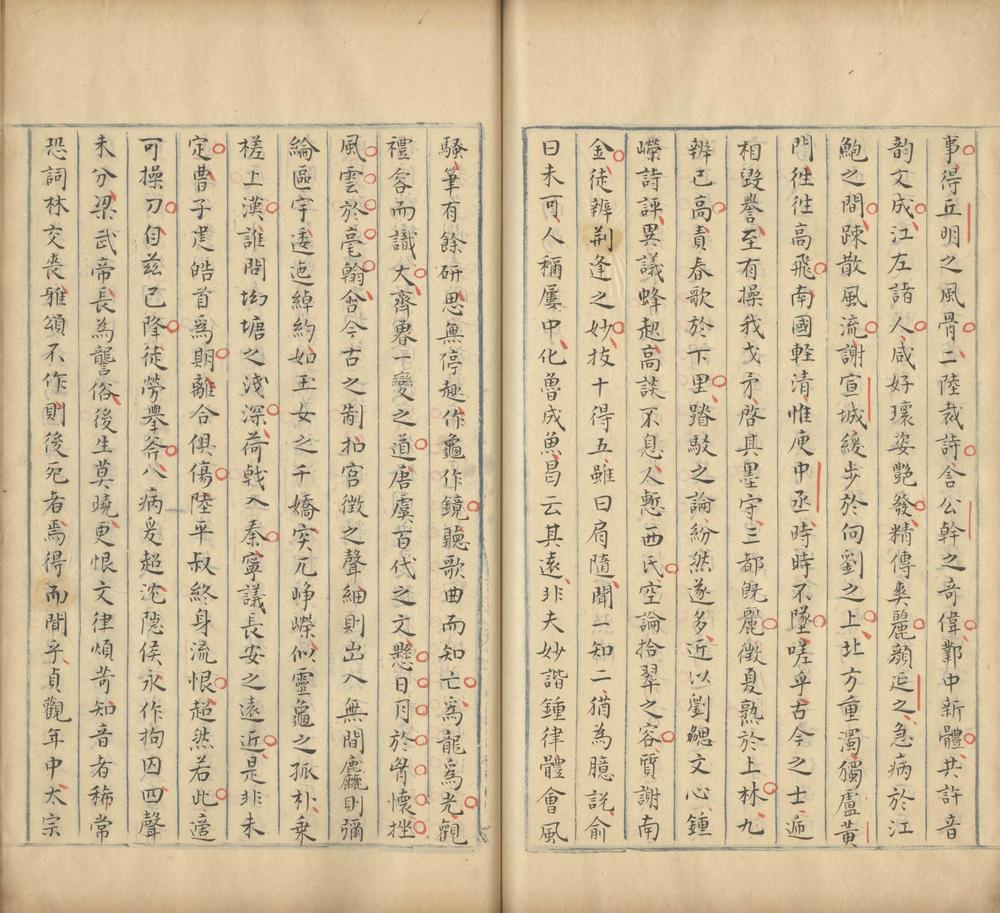 事得丘明之風骨二陸裁詩含公幹之奇偉鄴中新體共許音
韵文成江左諸人咸好瓌姿艷發精傳爽麗顏延之急病於江
鮑之間踈散風流謝宣城緩步於向劉之上北方重濁獨盧黃
門徃徃高飛南國輕清惟庾中丞時時不墜嗟乎古今之士遞
相毀譽至有操我戈矛啓其墨守三都既麗徵夏熟於上林九
辨已高責春歌於下里踳駁之論紛然遂多近以劉勰文心鍾
嶸詩評異議蜂起高談不息人慙西氏空論拾翠之容質謝南
金徒辨荆逢之妙扳十得五雖曰肩隨聞一知二猶為臆說俞
曰未可人稱屢中化魯成魚曷云其遠非夫妙諧鍾律體會風
騷筆有餘研思無停趣作龜作鏡聽歌曲而知亡為龍為光觀
禮容而識大齊魯一變之道唐虞百代之文懸日月於胷懷挫
風雲於毫翰含今古之制扣宮徵之聲細則出入無間麤則彌
綸區宇逶迤綽約如王女之千嬌突兀崢嶸似靈龜之孤朴乗
槎上漢誰問坳塘之淺深荷戟入秦寧議長安之遠近是非未
定曹子建皓首為期離合俱傷陸平叔終身流恨超然若此適
可操刀自兹已降徒勞舉斧八病爰超沈隱侯永作拘囚四聲
未分梁武帝長為聾俗後生莫曉更恨文律煩苛知音者稀常
恐詞林交喪雅頌不作則後死者焉得而聞乎貞觀年中太宗